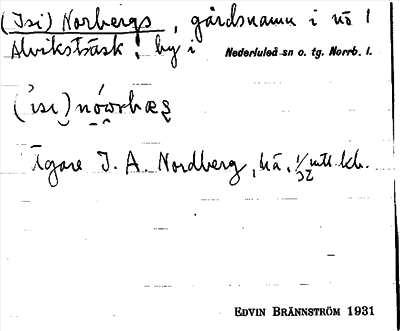 (Isi) Norbergs, gårdsnamn i nö
Alviksträsk, by i Nederluleå sn o. tg. Norrb. l.
Ägare J. A. Nordberg, hä. 1/32 mtl. kb.
EDVIN BRÄNNSTRÖM 1931